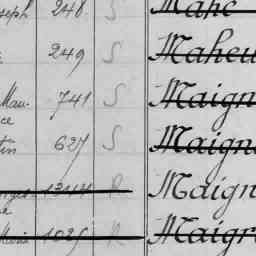 seph 248 S Mahé
249 S Maheu
Mau- 741 S Maign
ce
tin 627 S Maign
1344 R Maign
1025 R Maigr